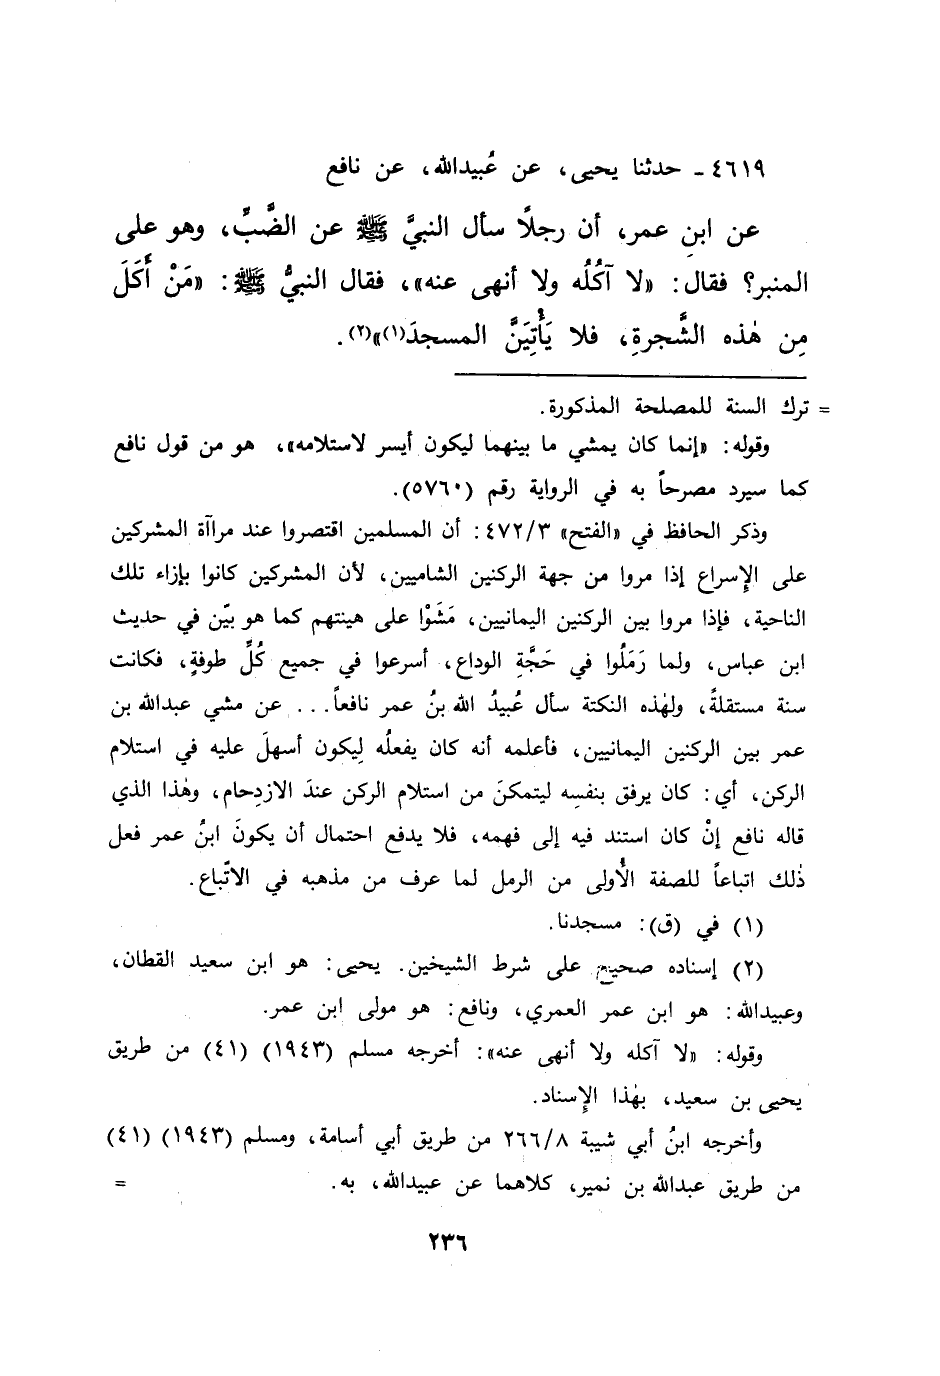 ٤٦١٩ ـ حدثنا يحيى، عن عُبيدالله، عن نافع
عن ابنِ عمر، أن رجلًا سأل النبيَّ ﷺ عن الضَّبِّ، وهو على
المنبر؟ فقال: «لا آكُلُه ولا أنهى عنه»، فقال النبيُّ ﷺ: «مَنْ أَكَلَ
مِن هٰذه الشَّجرةِ، فلا يَأْتِيَنَّ المسجدَ(١)»(٢).
= ترك السنة للمصلحة المذكورة.
وقوله: «إنما كان يمشي ما بينهما ليكون أيسر لاستلامه»، هو من قول نافع
كما سيرد مصرحاً به في الرواية رقم (٥٧٦٠).
وذكر الحافظ في «الفتح» ٤٧٢/٣: أن المسلمين اقتصروا عند مراآة المشركين
على الإسراع إذا مروا من جهة الركنين الشاميين، لأن المشركين كانوا بإزاء تلك
الناحية، فإذا مروا بين الركنين اليمانيين، مَشَوْا على هينتهم كما هو بيّن في حديث
ابن عباس، ولما رَمَلُوا في حَجَّةِ الوداع، أسرعوا في جميع كُلِّ طوفةٍ، فكانت
سنة مستقلةً، ولهٰذه النكتة سأل عُبيدُ الله بنُ عمر نافعاً... عن مشي عبدالله بن
عمر بين الركنين اليمانيين، فأعلمه أنه كان يفعلُه لِيكون أسهلَ عليه في استلام
الركن، أي: كان يرفق بنفسِه ليتمكنَ من استلام الركن عندَ الازدِحام، وهٰذا الذي
قاله نافع إنْ كان استند فيه إلى فهمه، فلا يدفع احتمال أن يكونَ ابنُ عمر فعل
ذٰلك اتباعاً للصفة الأُولى من الرمل لما عرف من مذهبه في الاتّباع.
(١) في (ق): مسجدنا.
(٢) إسناده صحيح على شرط الشيخين. يحيى: هو ابن سعيد القطان،
وعبيدالله: هو ابن عمر العمري، ونافع: هو مولى ابن عمر.
وقوله: «لا آكله ولا أنهى عنه»: أخرجه مسلم (١٩٤٣) (٤١) من طريق
يحيى بن سعيد، بهٰذا الإِسناد.
وأخرجه ابنُ أبي شيبة ٢٦٦/٨ من طريق أبي أسامة، ومسلم (١٩٤٣) (٤١)
من طريق عبدالله بن نمير، كلاهما عن عبيدالله، به. =
٢٣٦